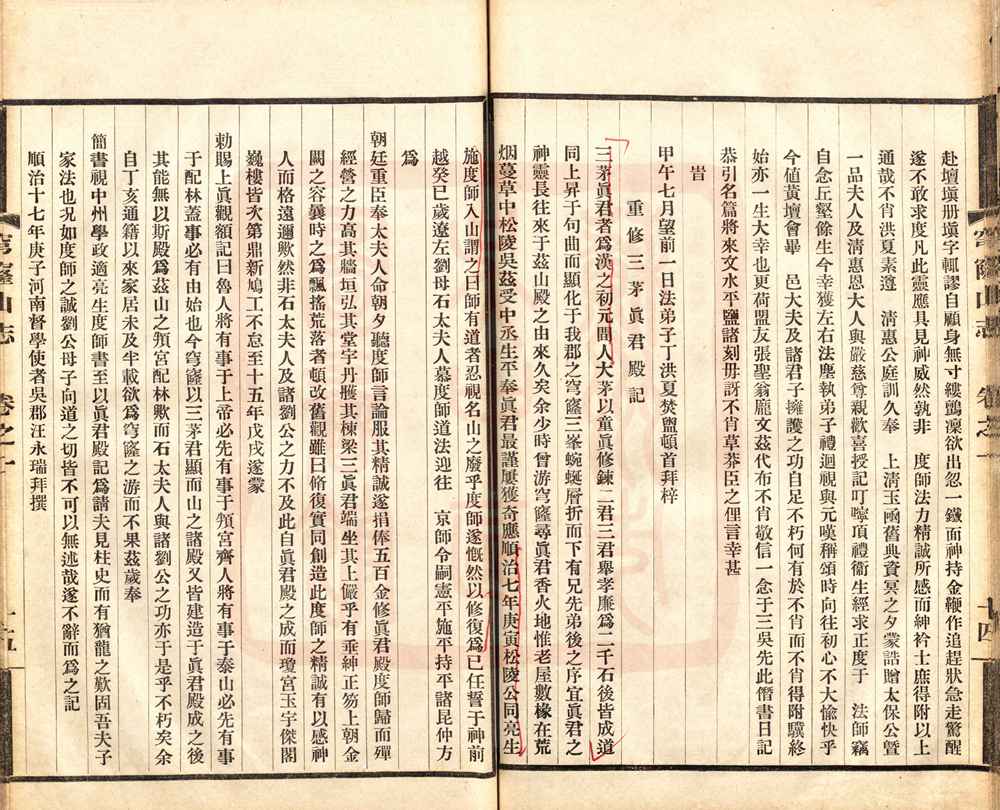 赴壇塡册塡字輒謬自顧身無寸縷鸜凜欲出忽一鐵面神持金鞭作追趕狀急走驚醒
遂不敢求度凡此靈應具見神威然孰非　度師法力精誠所感而紳衿士庶得附以上
通哉不肖洪夏素遵　淸惠公庭訓久奉　上淸玉凾舊典資冥之夕蒙誥贈太保公曁
一品夫人及淸惠恩大人與嚴慈尊親歡喜授記叮嚀頂禮衞生經求正度于　法師竊
自念丘壑餘生今幸獲左右法塵執弟子禮迴視與元嘆稱頌時向往初心不大愉快乎
今値黃壇會畢　邑大夫及諸君子擁護之功自足不朽何有於不肖而不肖得附驥終
始亦一生大幸也更荷盟友張聖翁龐文玆代布不肖敬信一念于三吳先此僭書日記
恭引名篇將來文水平鹽諸刻册訝不肖草莽臣之俚言幸甚
旹
甲午七月望前一日法弟子丁洪夏焚盥頓首拜梓
重修三茅眞君殿記
三茅眞君者爲漢之初元間人大茅以童眞修鍊二君三君舉孝廉爲二千石後皆成道
同上昇于句曲而顯化于我郡之穹窿三峯蜿蜒層折而下有兄先弟後之序宜眞君之
神靈長往來于玆山殿之由來久矣余少時曾游穹窿尋眞君香火地惟老屋數椽在荒
烟蔓草中松陵吳玆受中丞生平奉眞君最謹屢獲奇應順治七年庚寅松陵公同亮生
施度師入山謂之曰師有道者忍視名山之廢乎度師遂慨然以修復爲已任誓于神前
越癸巳歲遼左劉母石太夫人慕度師道法迎往　京師令嗣憲平施平持平諸昆仲方
爲
朝廷重臣奉太夫人命朝夕聽度師言論服其精誠遂捐俸五百金修眞君殿度師歸而殫
經營之力高其牆垣弘其堂宇丹雘其棟梁三眞君端坐其上儼乎有垂紳正笏上朝金
闕之容曩時之爲飄搖荒落者頓改舊觀雖曰脩復實同創造此度師之精誠有以感神
人而格遠邇歟然非石太夫人及諸劉公之力不及此自眞君殿之成而瓊宮玉宇傑閣
巍樓皆次第鼎新鳩工不怠至十五年戊戌遂蒙
勅賜上眞觀額記曰魯人將有事于上帝必先有事于頖宮齊人將有事于泰山必先有事
于配林蓋事必有由始也今穹窿以三茅君顯而山之諸殿又皆建造于眞君殿成之後
其能無以斯殿爲玆山之頖宮配林歟而石太夫人與諸劉公之功亦于是乎不朽矣余
自丁亥通籍以來家居未及半載欲爲穹窿之游而不果玆歲奉
簡書視中州學政適亮生度師書至以眞君殿記爲請夫見柱史而有猶龍之歎固吾夫子
家法也况如度師之誠劉公母子向道之切皆不可以無述哉遂不辭而爲之記
順治十七年庚子河南督學使者吳郡汪永瑞拜撰
穹窿山志　卷之一　十四
穹窿山志　卷之一　十五